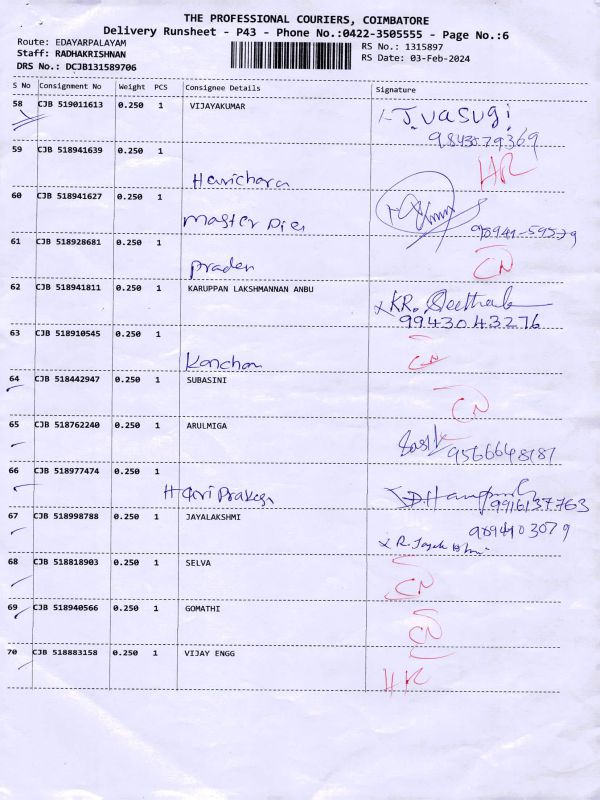 THE PROFESSIONAL COURIERS, COIMBATORE
Delivery Runsheet - P43 - Phone No.:0422-3505555 - Page No.:6
Route: EDAYARPALAYAM
RS No.: 1315897
Staff: RADHAKRISHNAN
RS Date: 03-Feb-2024
DRS No.: DCJB131589706
S No Consignment No Weight PCS Consignee Details Signature
58 CJB 519011613 0.250 1 VIJAYAKUMAR J. vasugi
9843579369
59 CJB 518941639 0.250 1
Haricharan HR
60 CJB 518941627 0.250 1
Master Die 98941-59579
61 CJB 518928681 0.250 1
Pradeep CN
62 CJB 518941811 0.250 1 KARUPPAN LAKSHMANNAN ANBU KR.
9943043276
63 CJB 518910545 0.250 1
Kanchan CN
64 CJB 518442947 0.250 1 SUBASINI
CN
65 CJB 518762240 0.250 1 ARULMIGA
9566648181
66 CJB 518977474 0.250 1
Hari Prakash 9916137763
67 CJB 518998788 0.250 1 JAYALAKSHMI 9894103079
68 CJB 518818903 0.250 1 SELVA
CN
69 CJB 518940566 0.250 1 GOMATHI
CN
70 CJB 518883158 0.250 1 VIJAY ENGG
HR